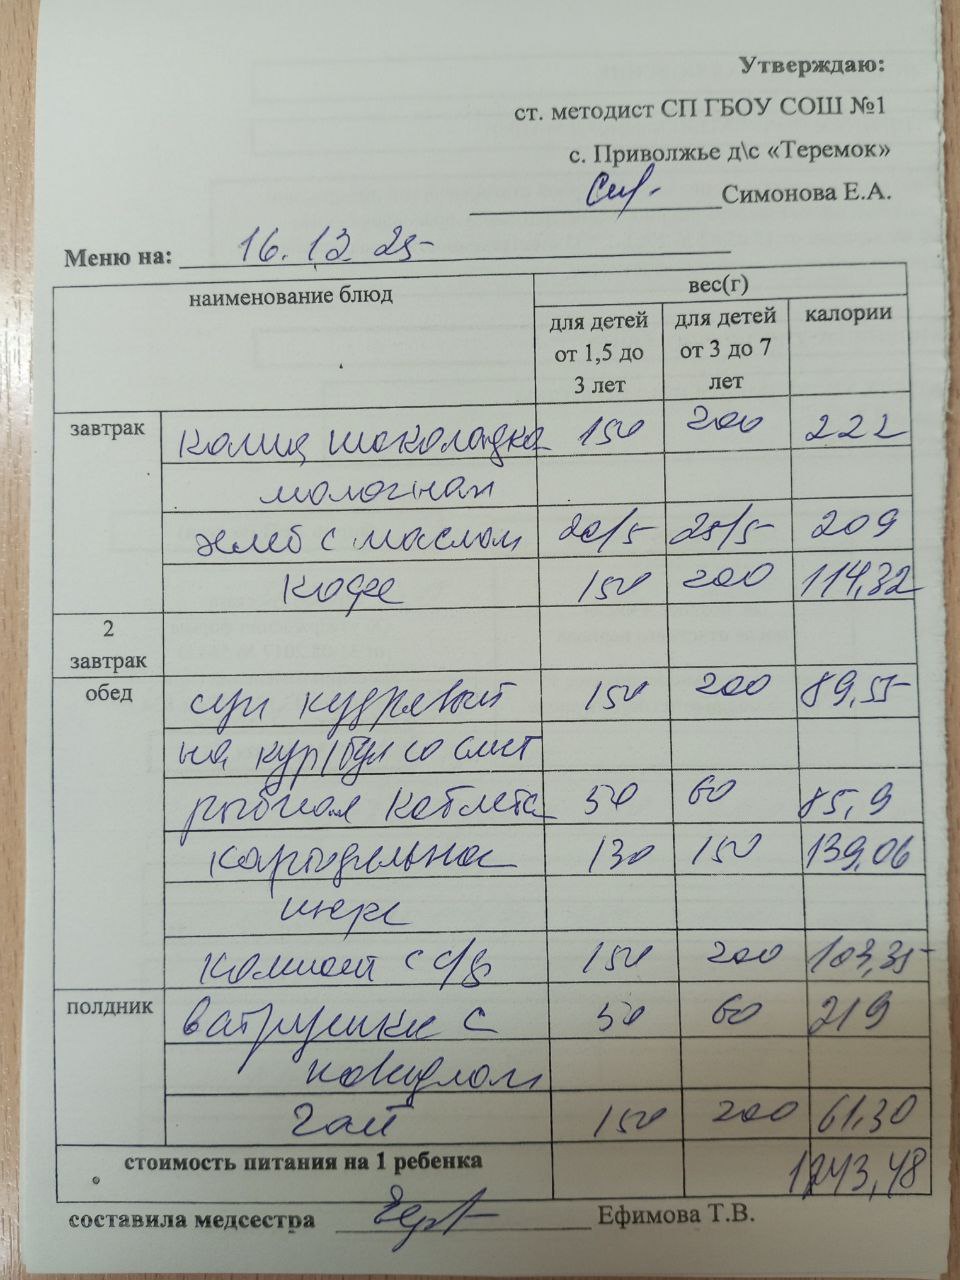 Утверждаю:
ст. методист СП ГБОУ СОШ №1
с. Приволжье д\с «Теремок»
Симонова Е.А.
Меню на: 16. 12 25
наименование блюд вес(г)
для детей от 1,5 до 3 лет для детей от 3 до 7 лет калории
завтрак каша шоколадка 150 200 222
молочная
хлеб с маслом 20/5 25/5 209
кофе 150 200 114,32
2 завтрак
обед суп кудрявый 150 200 89,55
на кур/бул со смет
рыбная котлета 50 60 85,9
картофельное 130 150 139,06
пюре
компот с с/ф 150 200 103,35
полдник ватрушка с 50 60 219
повидлом
чай 150 200 61,30
стоимость питания на 1 ребенка 1243,48
составила медсестра Ефимова Т.В.